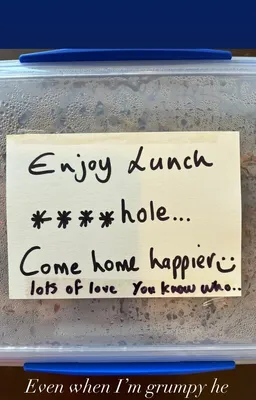 Enjoy Lunch
****hole...
Come home happier
lots of love You know who..
Even when I'm grumpy he